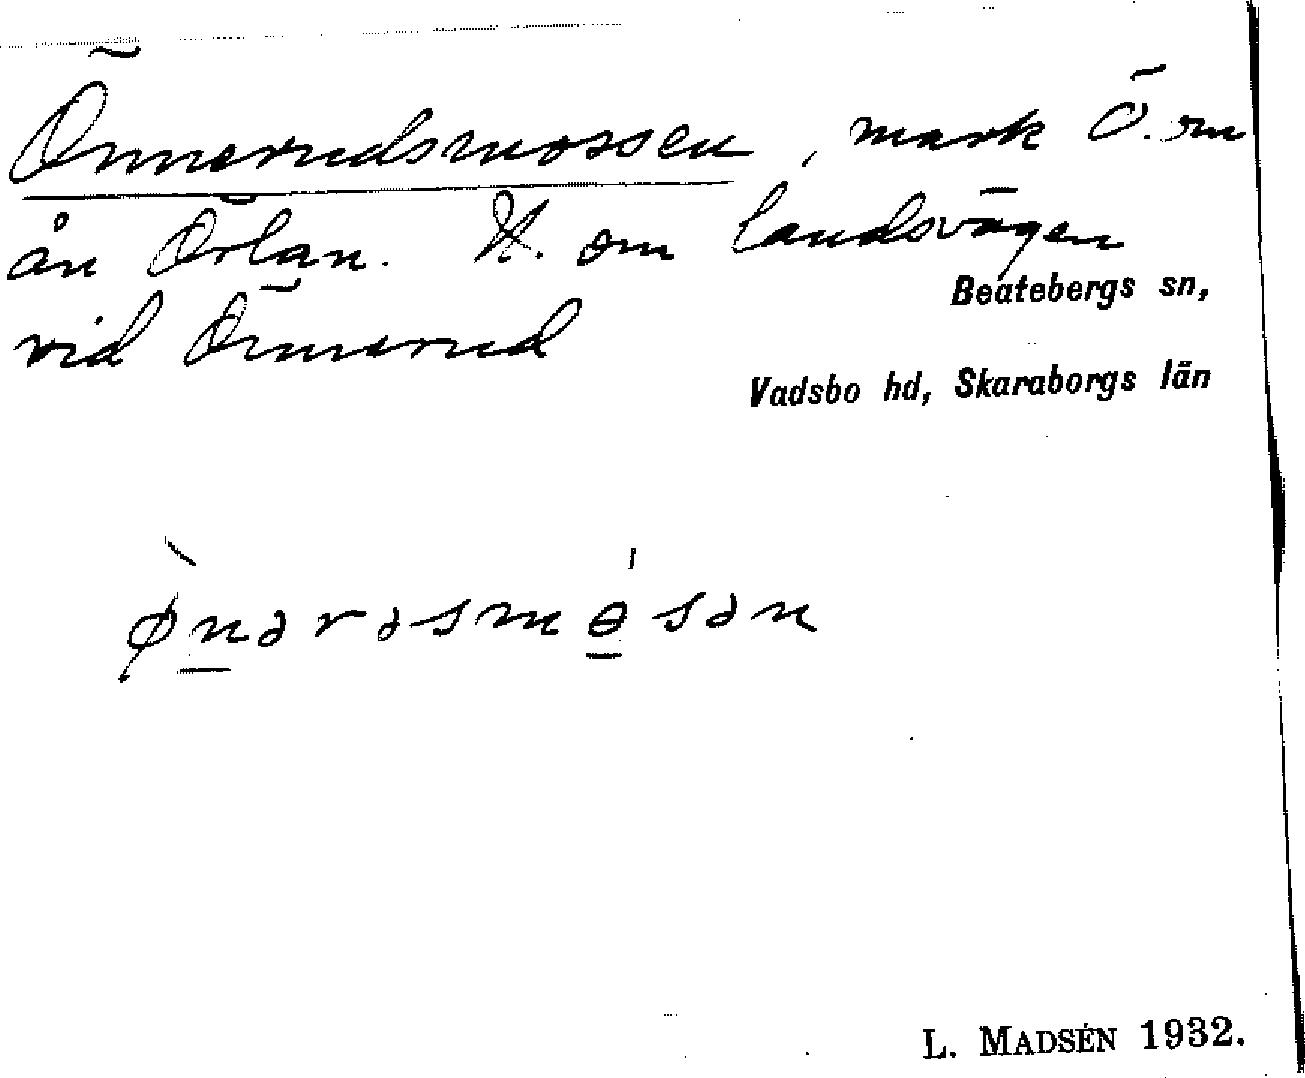 Önnerudsmossen, mark Ö. om
ån Örlan. N. om landsvägen
Beatebergs sn,
vid Önnerud
Vadsbo hd, Skaraborgs län
ø̀nərəsmɵ́sən
L. MADSÉN 1932.